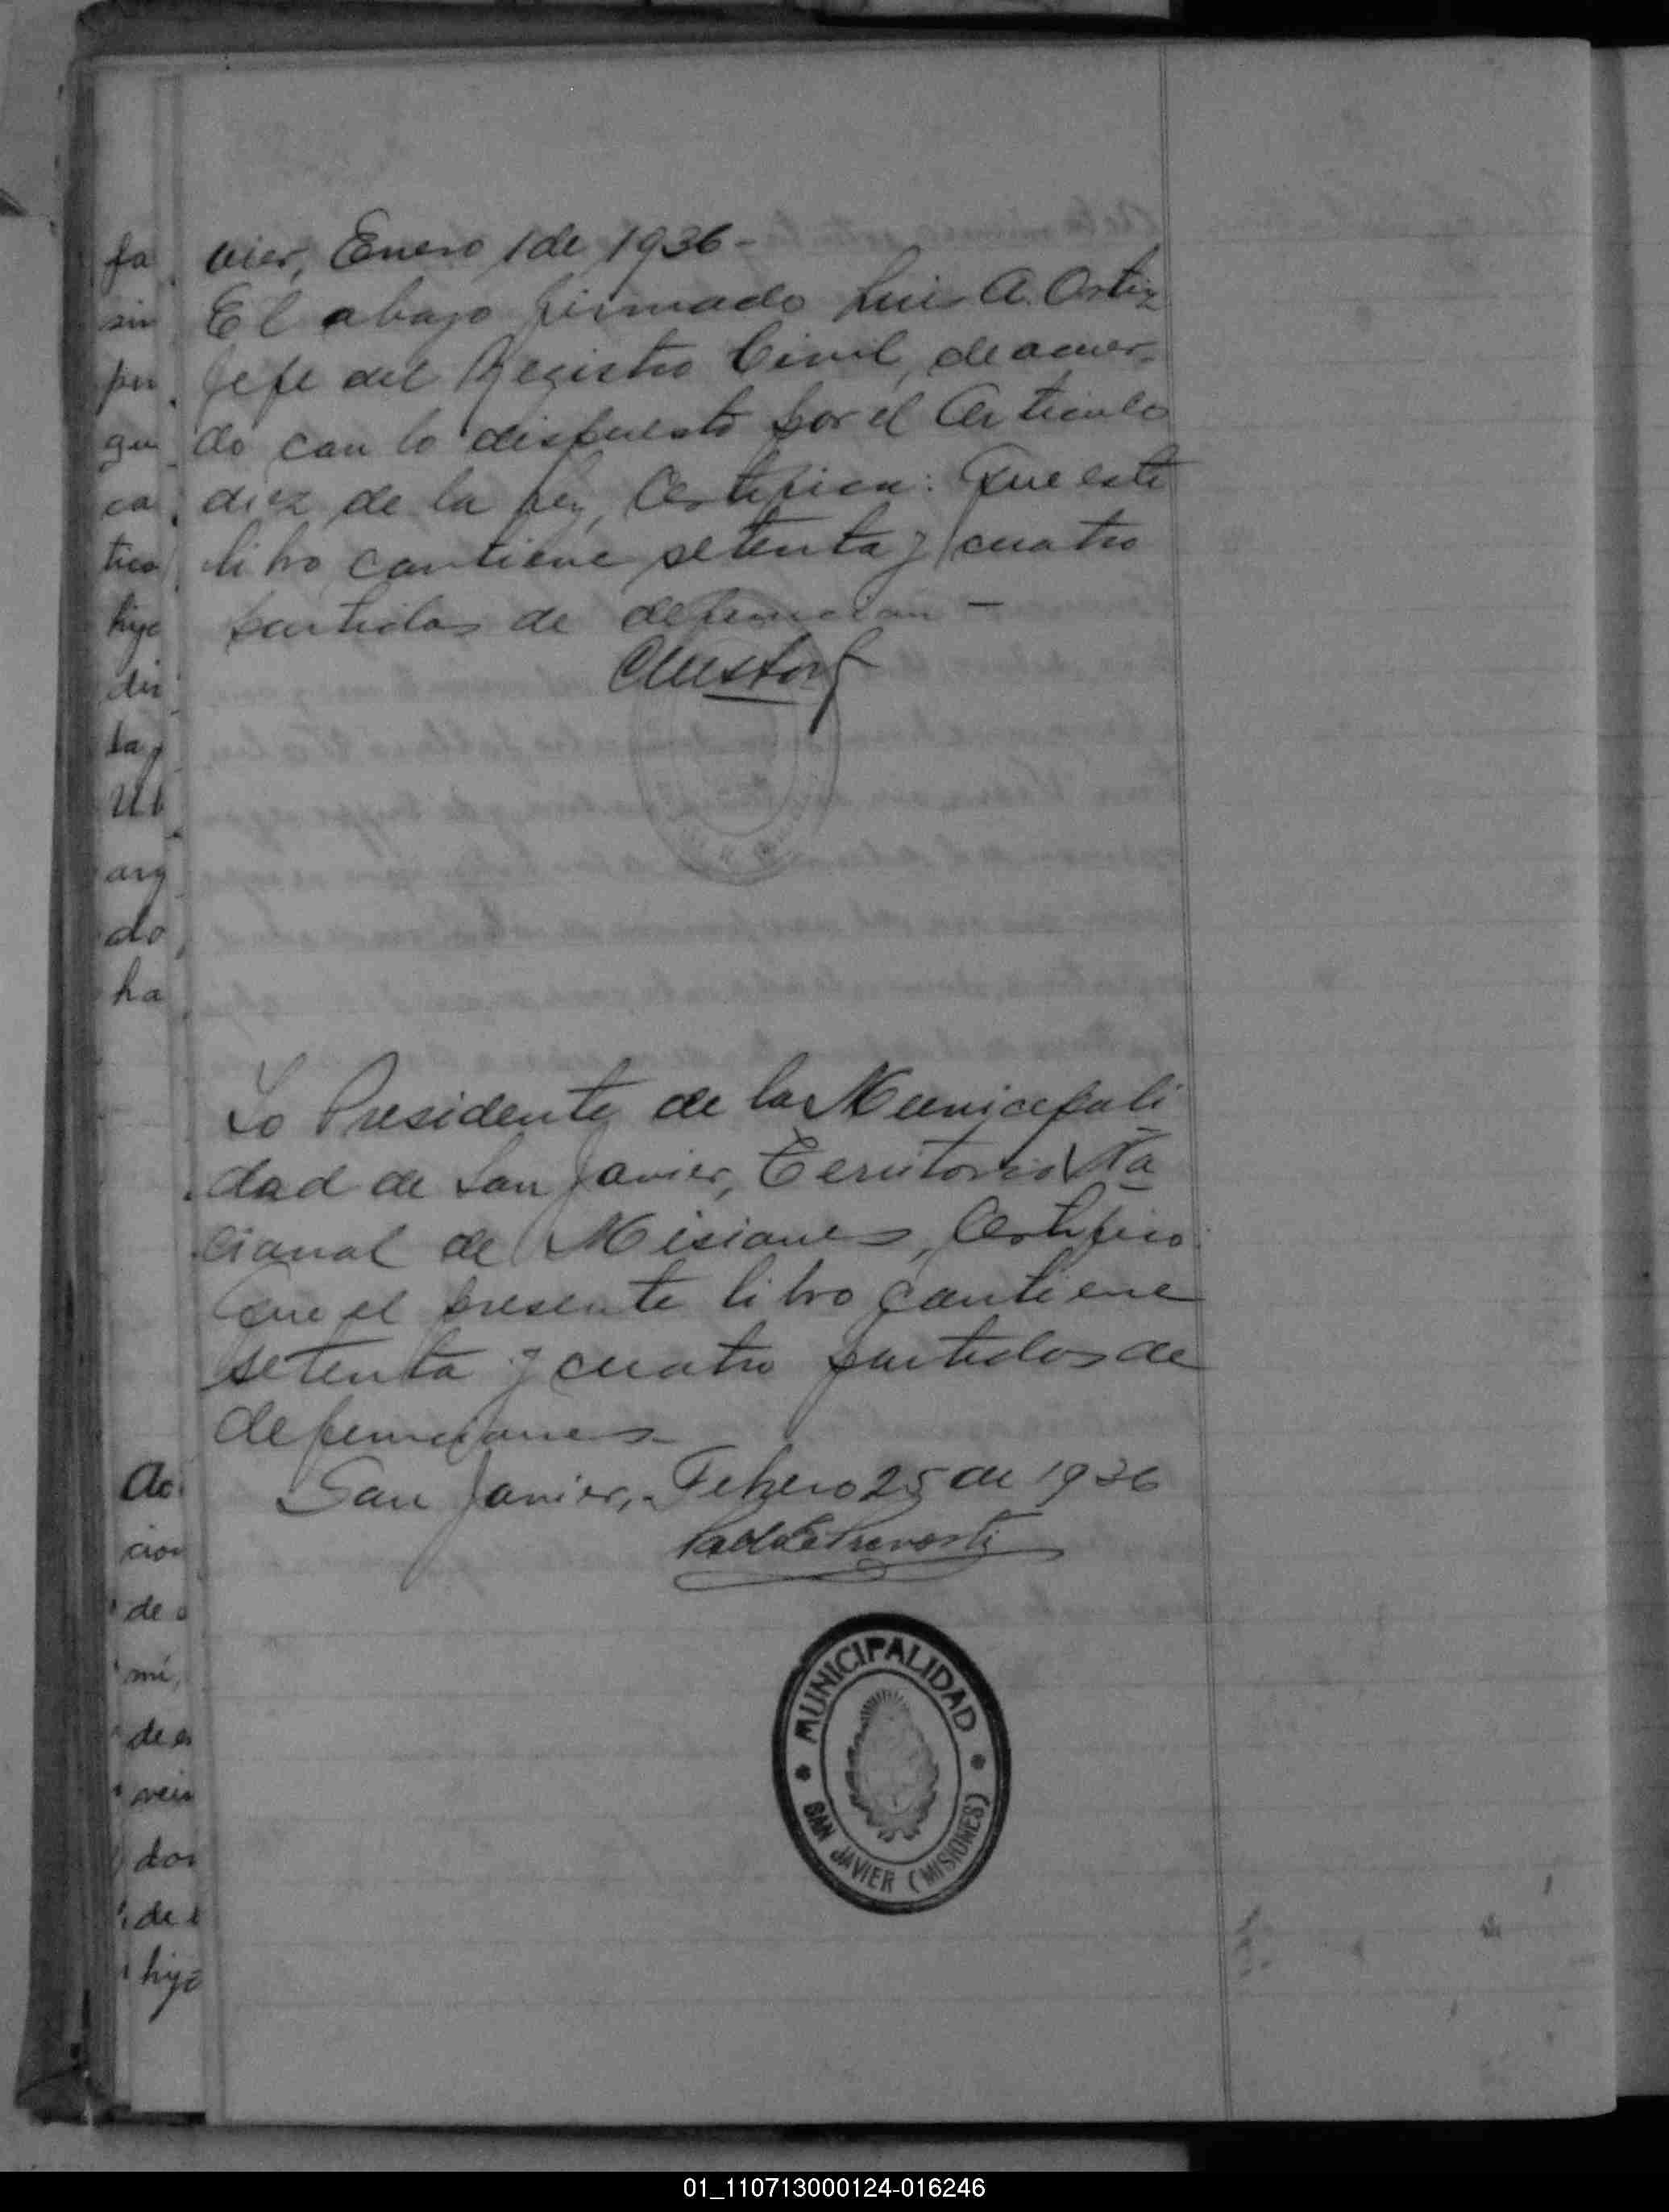 vier, Enero 1 de 1936-
El abajo firmado Luis A. Ortiz
Jefe del Registro Civil, de acuer-
do con lo dispuesto por el Articulo
diez de la ley, Certifica: Que este
libro contiene setenta y cuatro
partidas de defuncion -
Yo Presidente de la Municipali
dad de San Javier, Territorio Na
cional de Misiones, Certifico:
Que el presente libro contiene
setenta y cuatro partidas de
defunciones-
San Javier, Febrero 25 de 1936
MUNICIPALIDAD
SAN JAVIER (MISIONES)
fa
sin
por
gu
ca
tico
hijo
dis
ta y
Ub
arg
do
ha
Ac
cion
de
mi,
de
vein
dos
de
hijo
01_110713000124-016246